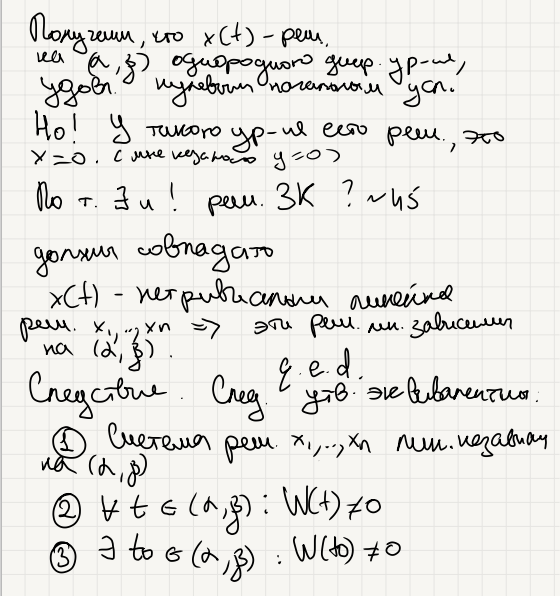 Получаем, что x(t) - реш.
на (α, β) однородного дифф. ур-ие,
удовл. нулевым начальным усл.
Но! У такого ур-ие есть реш., это
x=0. (мне казалось y=0)
По т. ∃ и ! реш. ЗК ?
должны совпадать
x(t) - нетривиальн линейна
реш. x₁,..,xn => эти реш. лин. зависимы
на (α, β).
q. e. d.
Следствие. След. утв. эквивалентны:
① Система реш. x₁,..,xn лин. независим
на (α, β)
② ∀ t ∈ (α, β) : W(t) ≠ 0
③ ∃ t₀ ∈ (α, β) : W(t₀) ≠ 0